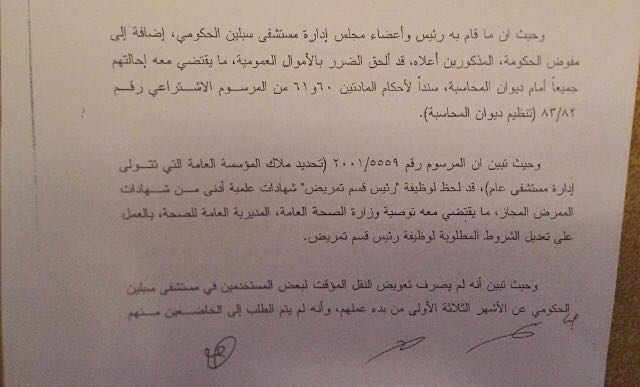 وحيث ان ما قام به رئيس وأعضاء مجلس إدارة مستشفى سبلين الحكومي، إضافة إلى
مفوض الحكومة، المذكورين أعلاه، قد ألحق الضرر بالأموال العمومية، ما يقتضي معه إحالتهم
جميعاً أمام ديوان المحاسبة، سنداً لأحكام المادتين ٦٠ و٦١ من المرسوم الاشتراعي رقم
٨٣/٨٢ (تنظيم ديوان المحاسبة).
وحيث تبين ان المرسوم رقم ٢٠٠١/٥٥٥٩ (تحديد ملاك المؤسسة العامة التي تتولى
إدارة مستشفى عام)، قد لحظ لوظيفة "رئيس قسم تمريض" شهادات علمية أدنى من شهادات
الممرض المجاز، ما يقتضي معه توصية وزارة الصحة العامة، المديرية العامة للصحة، بالعمل
على تعديل الشروط المطلوبة لوظيفة رئيس قسم تمريض.
وحيث تبين أنه لم يصرف تعويض النقل المؤقت لبعض المستخدمين في مستشفى سبلين
الحكومي عن الأشهر الثلاثة الأولى من بدء عملهم، وأنه لم يتم الطلب إلى الخاضعين منهم